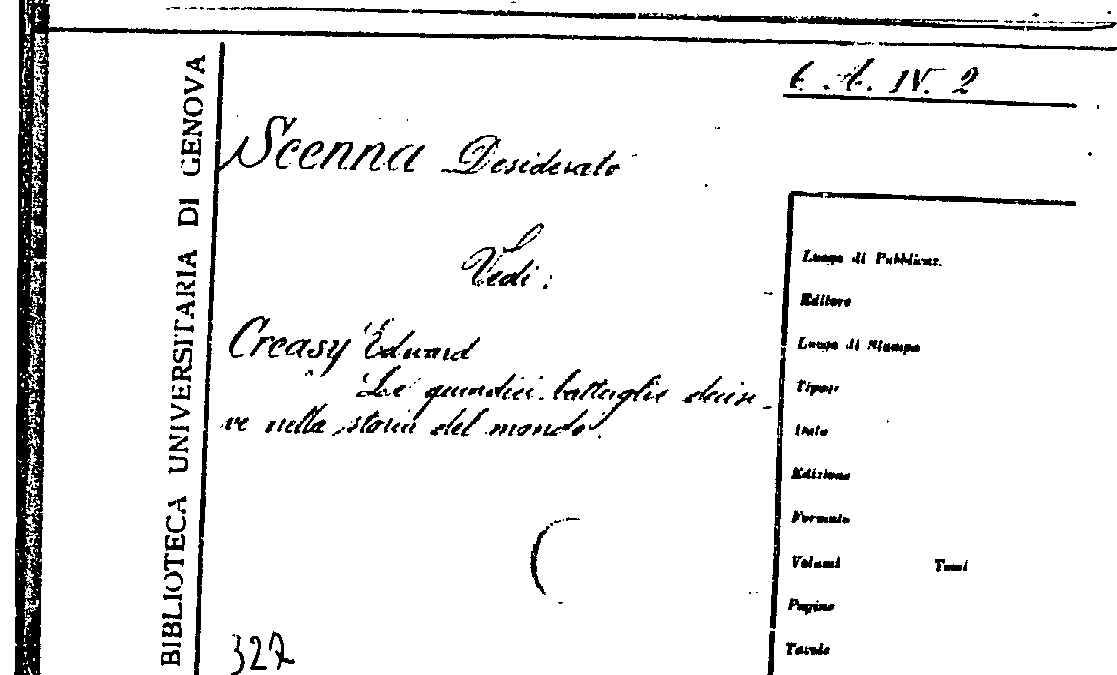 BIBLIOTECA UNIVERSITARIA DI GENOVA
6. A. IV. 2
Scenna Desiderato
Vedi:
Creasy Edward
Le quindici battaglie decisi-
ve nella storia del mondo.
327
Luogo di Pubblicaz.
Editore
Luogo di Stampa
Tipogr
Data
Edizione
Formato
Volumi Tomi
Pagine
Tavole